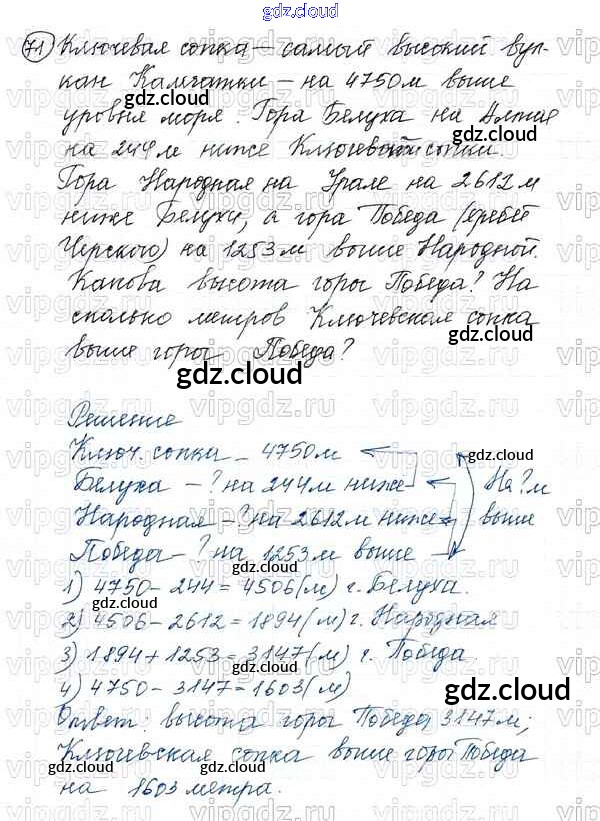 gdz.cloud
71 Ключевая сопка – самый высокий вул-
кан Камчатки – на 4750 м выше
уровня моря. Гора Белуха на Алтае
на 244 м ниже Ключевой сопки.
Гора Народная на Урале на 2612 м
ниже Белухи, а гора Победа (хребет
Черского) на 1253 м выше Народной.
Какова высота горы Победа? На
сколько метров Ключевская сопка
выше горы Победа?
gdz.cloud
Решение
Ключ. сопки – 4750 м
Белуха – ? на 244 м ниже На ? м
Народная – ? на 2612 м ниже выше
Победа – ? на 1253 м выше
1) 4750 – 244 = 4506 (м) г. Белуха.
2) 4506 – 2612 = 1894 (м) г. Народная
3) 1894 + 1253 = 3147 (м) г. Победа
4) 4750 – 3147 = 1603 (м)
Ответ: высота горы Победа 3147 м;
Ключевская сопка выше горы Победа
на 1603 метра.